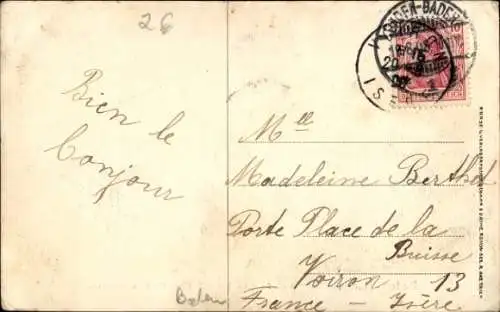 26
Bien le
bonjour
BADEN-BADEN
ISÈRE
Mlle
Madeleine Berthet
Porte Place de la
Buisse
Voiron 13
France - Isère
Baden